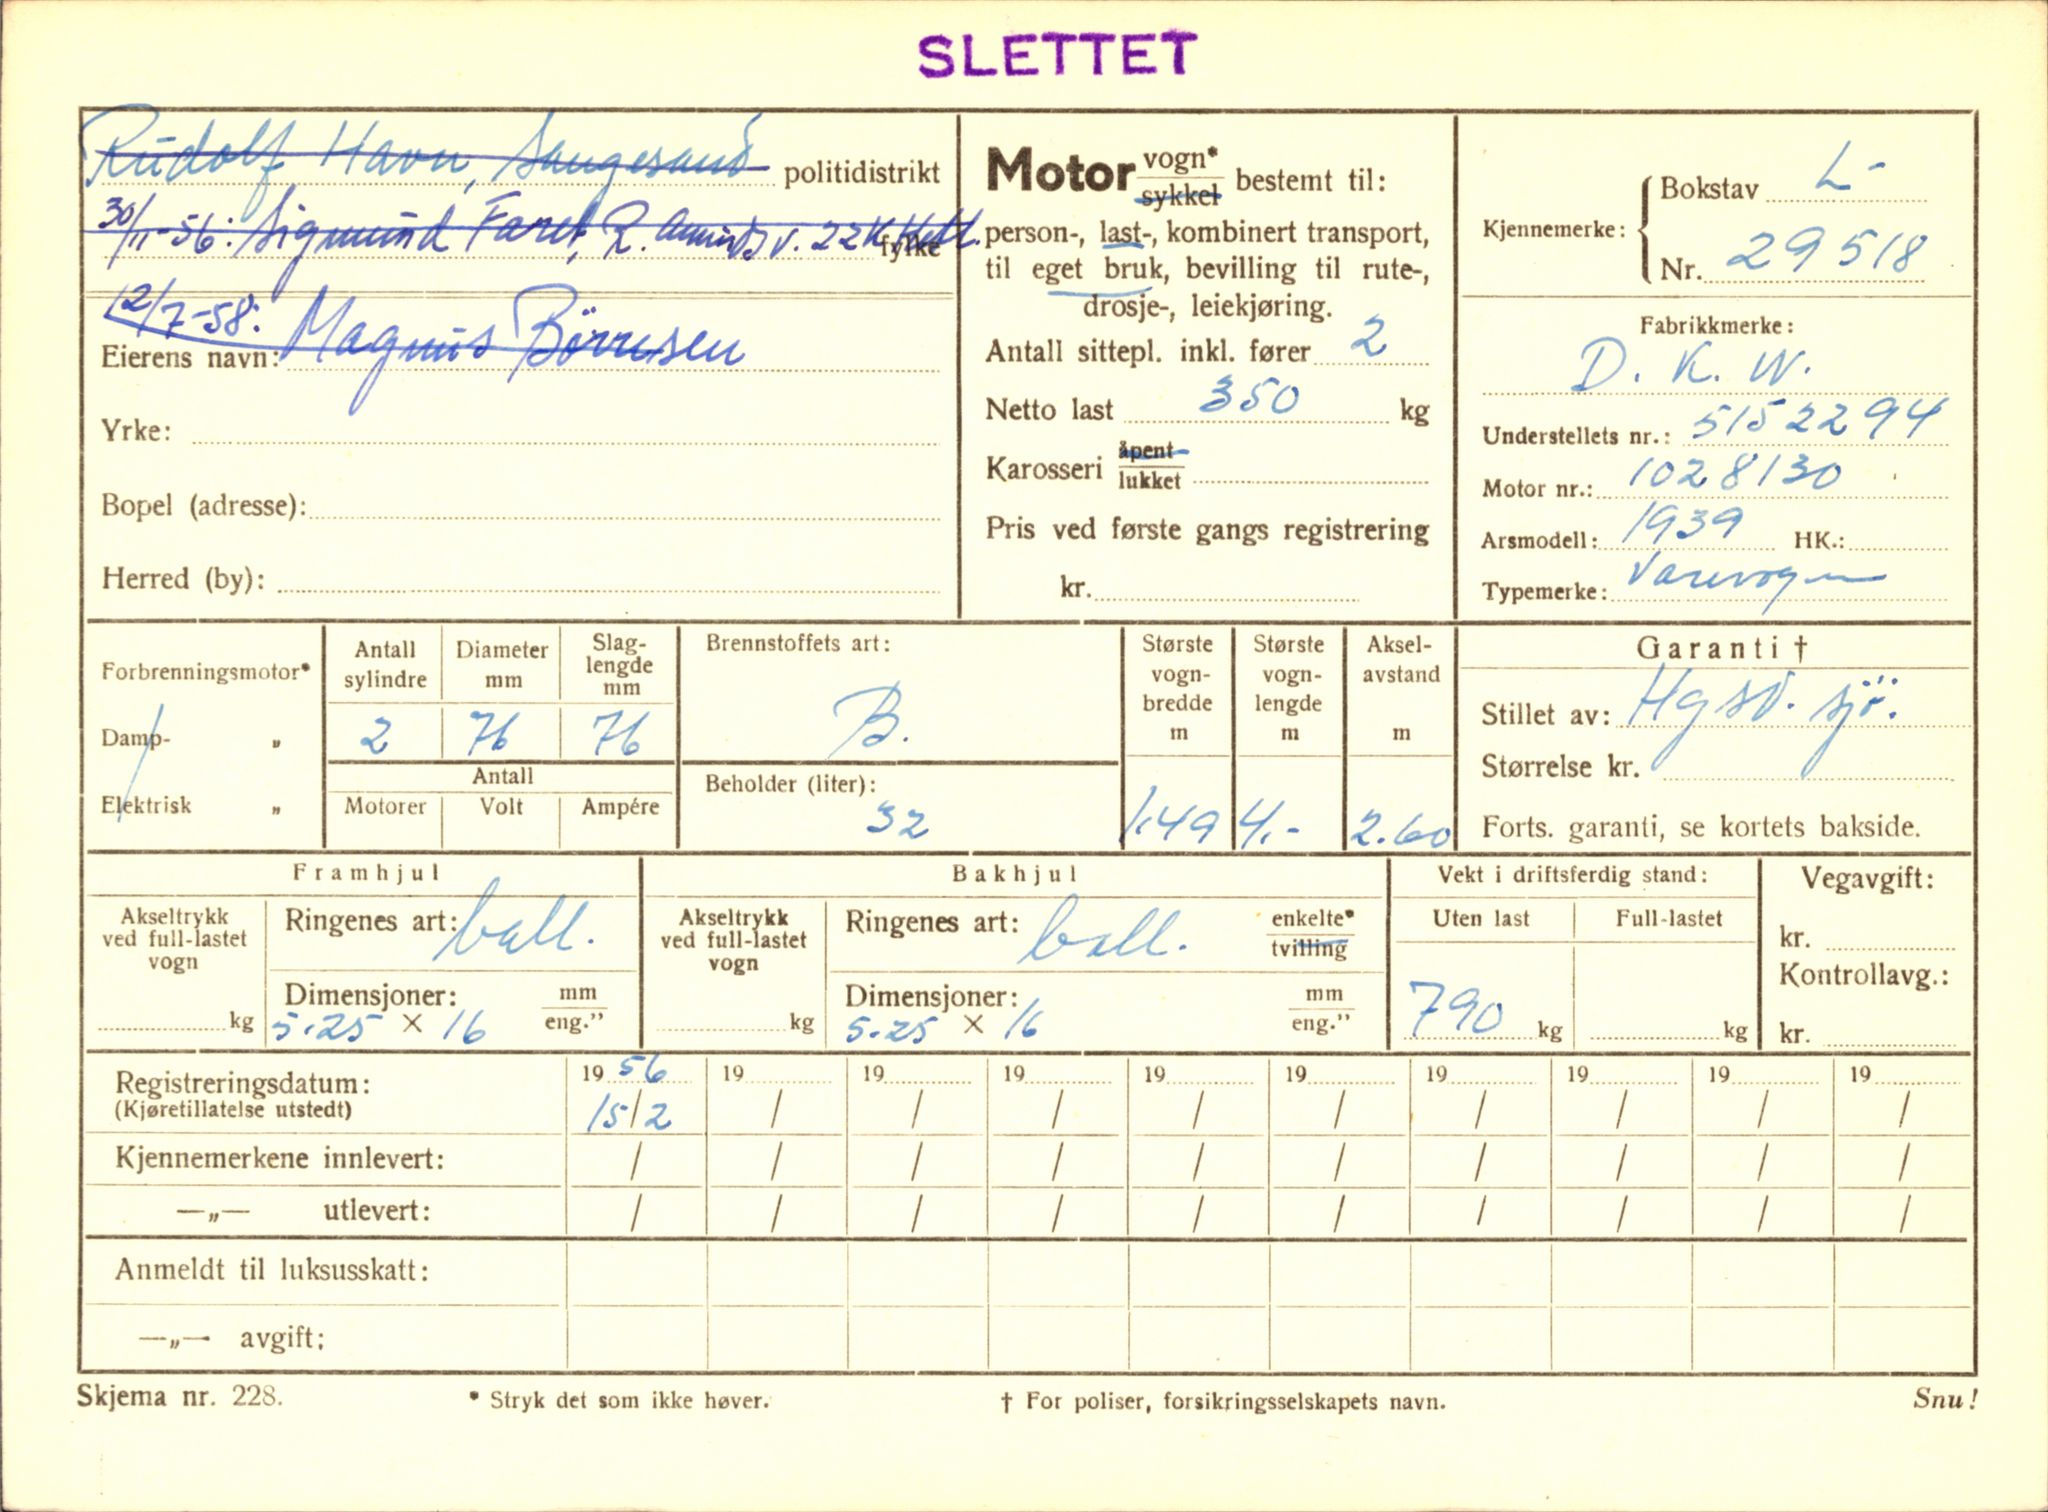 SLETTET
Rudolf Havn, politidistrikt
30/11-56: Sigmund Faret, R. v. 22 fylke
12/7-58:
Eierens navn: Magnus Börresen
Yrke:
Bopel (adresse):
Herred (by):
Motor vogn* / sykkel bestemt til:
person-, last-, kombinert transport,
til eget bruk, bevilling til rute-,
drosje-, leiekjøring.
Antall sittepl. inkl. fører 2
Netto last 350 kg
Karosseri åpent / lukket
Pris ved første gangs registrering
kr.
Kjennemerke: Bokstav L-
Nr. 29518
Fabrikkmerke:
D. K. W.
Understellets nr.: 5152294
Motor nr.: 1028130
Arsmodell: 1939 HK.:
Typemerke: Varevogn
Forbrenningsmotor*
Damp- „
Elektrisk „
Antall sylindre
2
Diameter mm
76
Slag-
lengde
mm
76
Antall
Motorer Volt Ampére
Brennstoffets art:
B.
Beholder (liter):
32
Største
vogn-
bredde
m
1.49
Største
vogn-
lengde
m
4.-
Aksel-
avstand
m
2.60
Garanti †
Stillet av: Hgsd. sjö.
Størrelse kr.
Forts. garanti, se kortets bakside.
Framhjul
Akseltrykk
ved full-lastet
vogn
kg
Ringenes art: ball.
Dimensjoner: mm
5.25 × 16 eng.”
Bakhjul
Akseltrykk
ved full-lastet
vogn
kg
Ringenes art: ball. enkelte* / tvilling
Dimensjoner: mm
5.25 × 16 eng.”
Vekt i driftsferdig stand:
Uten last Full-lastet
790 kg kg
Vegavgift:
kr.
Kontrollavg.:
kr.
Registreringsdatum: 19 56 19 19 19 19 19 19 19 19 19
(Kjøretillatelse utstedt) 15/2 / / / / / / / / /
Kjennemerkene innlevert: / / / / / / / / / /
—„— utlevert: / / / / / / / / / /
Anmeldt til luksusskatt:
—„— avgift;
Skjema nr. 228. * Stryk det som ikke høver. † For poliser, forsikringsselskapets navn. Snu!